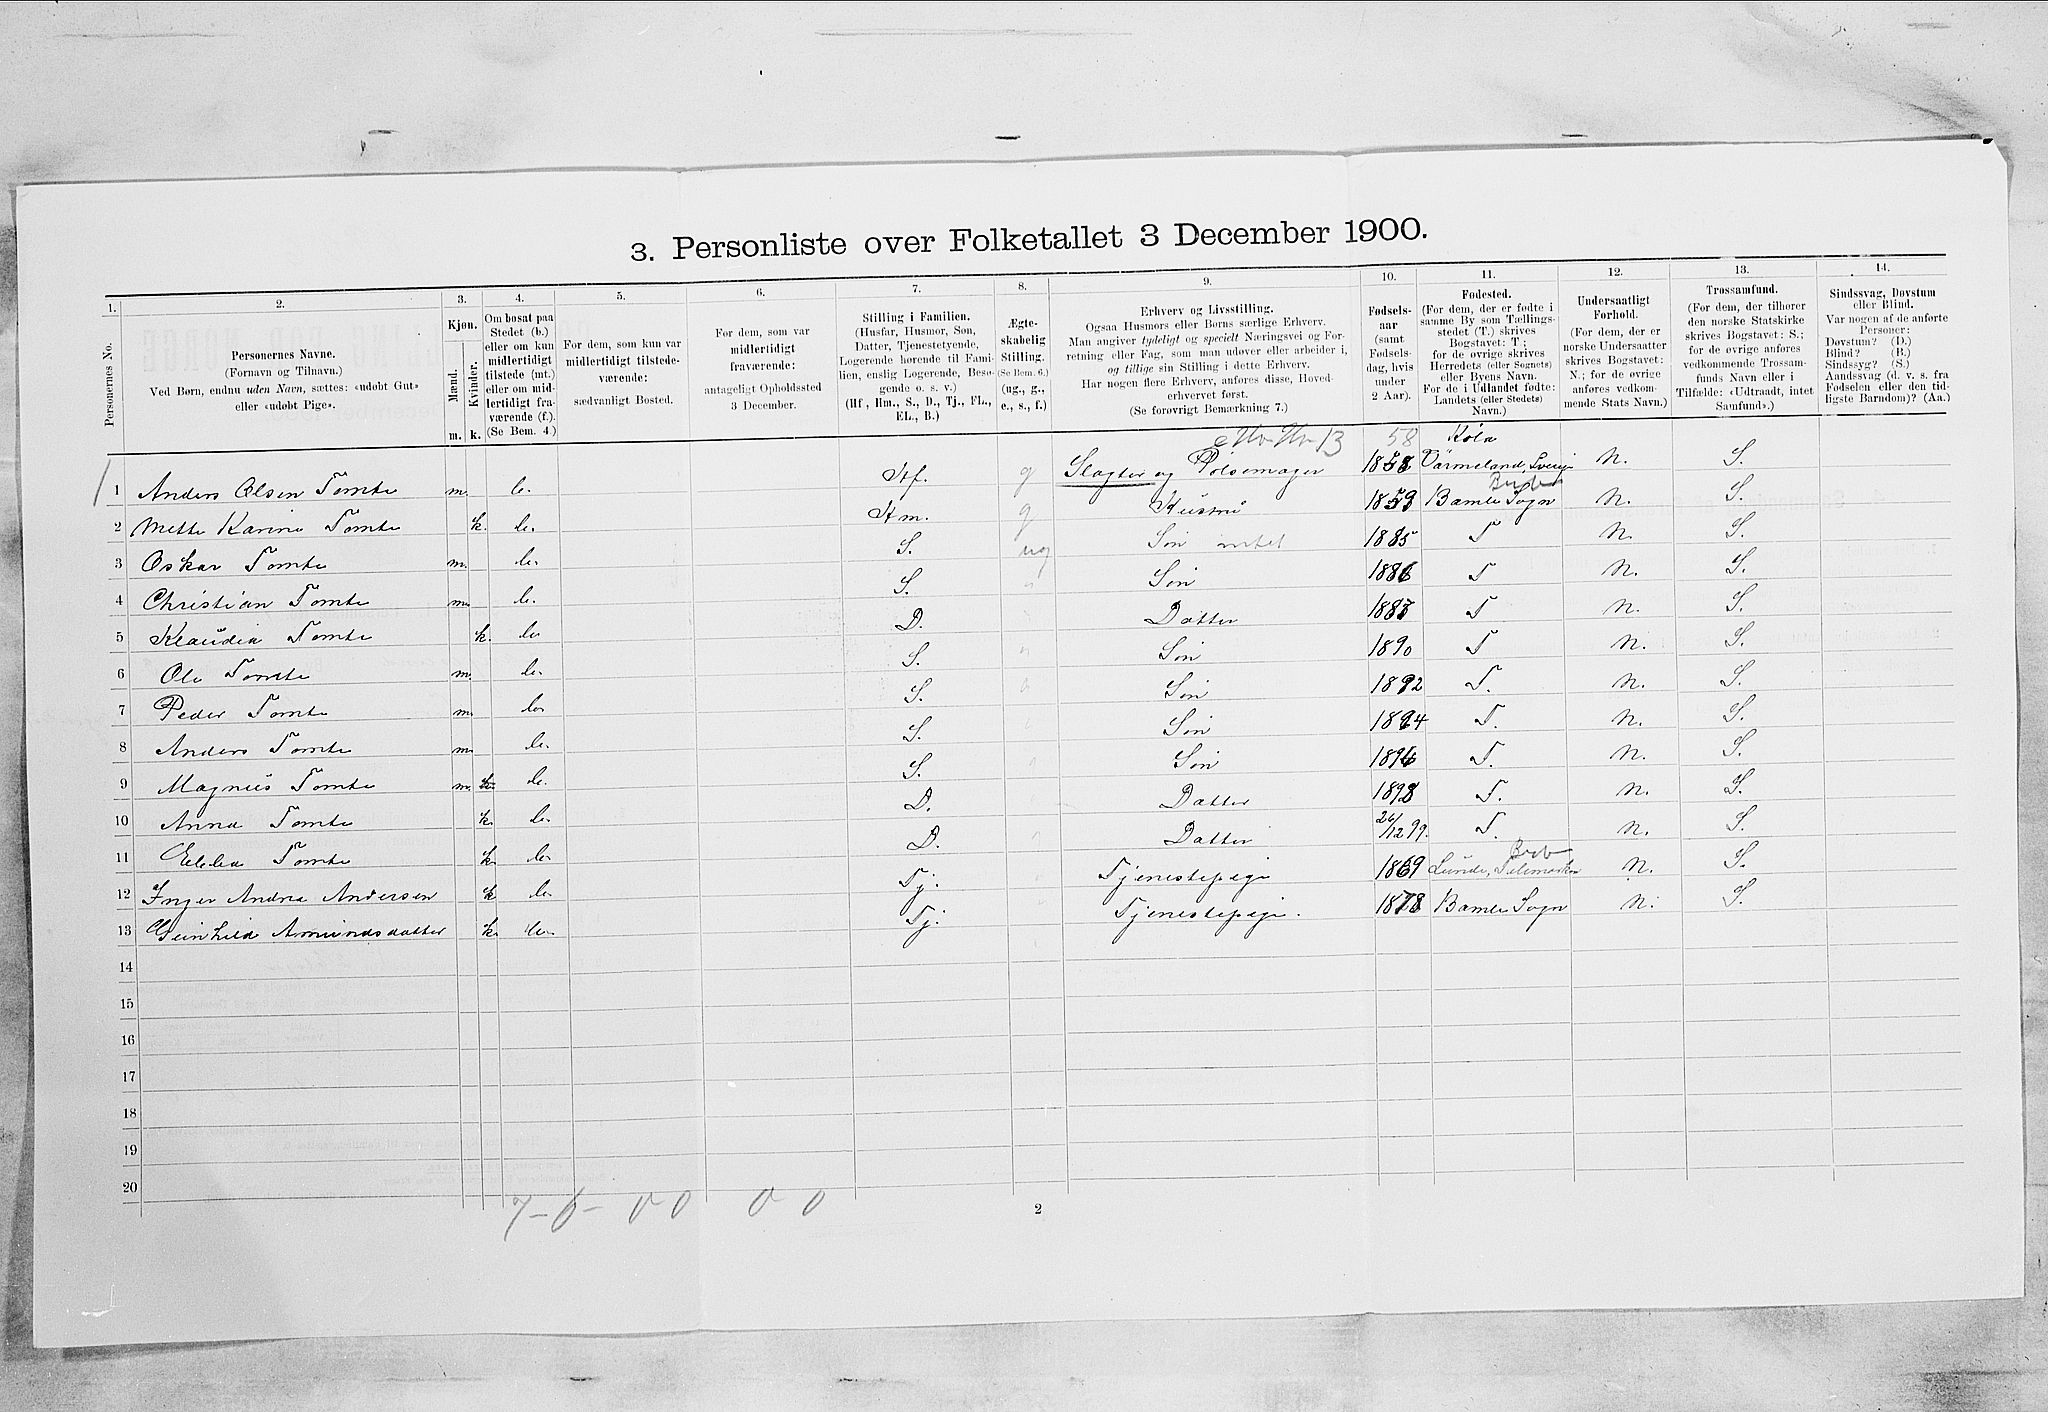 3. Personliste over Folketallet 3 December 1900.
1. 2. 3. 4. 5. 6. 7. 8. 9. 10. 11. 12. 13. 14.
Personernes No.
Personernes Navne.
(Fornavn og Tilnavn.)
Ved Børn, endnu uden Navn, sættes: «udøbt Gut»
eller «udøbt Pige».
Kjøn.
Mænd. Kvinder.
m. k.
Om bosat paa
Stedet (b.)
eller om kun
midlertidigt
tilstede (mt.)
eller om mid-
lertidigt fra-
værende (f.).
(Se Bem. 4.)
For dem, som kun var
midlertidigt tilstede-
værende:
sædvanligt Bosted.
For dem, som var
midlertidigt
fraværende:
antageligt Opholdssted
3 December.
Stilling i Familien.
(Husfar, Husmor, Søn,
Datter, Tjenestetyende,
Logerende hørende til Fami-
lien, enslig Logerende, Besø-
gende o. s. v.)
(Hf., Hm., S., D., Tj., FL.,
EL., B.)
Ægte-
skabelig
Stilling.
(Se Bem. 6.)
(ug., g.,
e., s., f.)
Erhverv og Livsstilling.
Ogsaa Husmors eller Børns særlige Erhverv.
Man angiver tydeligt og specielt Næringsvei og For-
retning eller Fag, som man udøver eller arbeider i,
og tillige sin Stilling i dette Erhverv.
Har nogen flere Erhverv, anføres disse, Hoved-
erhvervet først.
(Se forøvrigt Bemærkning 7.)
Fødsels-
aar
(samt
Fødsels-
dag, hvis
under
2 Aar).
Fødested.
(For dem, der er fødte i
samme By som Tællings-
stedet (T.) skrives
Bogstavet: T;
for de øvrige skrives
Herredets (eller Sognets)
eller Byens Navn.
For de i Udlandet fødte:
Landets (eller Stedets)
Navn.)
Undersaatligt
Forhold.
(For dem, der er
norske Undersaatter
skrives Bogstavet:
N.; for de øvrige
anføres vedkom-
mende Stats Navn.)
Trossamfund.
(For dem, der tilhører
den norske Statskirke
skrives Bogstavet: S.;
for de øvrige anføres
vedkommende Trossam-
funds Navn eller i
Tilfælde: «Udtraadt, intet
Samfund».)
Sindssvag, Døvstum
eller Blind.
Var nogen af de anførte
Personer:
Døvstum? (D.)
Blind? (B.)
Sindssyg? (S.)
Aandssvag (d. v. s. fra
Fødselen eller den tid-
ligste Barndom)? (Aa.)
13 58 Køla
1 Anders Olsen Tomte m. b. Hf. g Slagter og Pølsemager 1858 Värmeland, Sverige N. S.
2 Mette Karine Tomte k. b. Hm. g Hustru 1859 Bamle Sogn N. S.
3 Oskar Tomte m. b. S. ug Søn intet 1885 T N. S.
4 Christian Tomte m. b. S. Søn 1886 T N. S.
5 Klaudia Tomte k. b. D. Datter 1887 T N. S.
6 Ole Tomte m. b. S. Søn 1890 T N. S.
7 Peder Tomte m. b. S. Søn 1892 T. N. S.
8 Anders Tomte m. b. S. Søn 1894 T. N. S.
9 Magnus Tomte m. b. S. Søn 1896 T. N. S.
10 Anna Tomte k. b. D. Datter 1898 T. N. S.
11 Ebba Tomte k. b. D. Datter 26/12 99. T. N. S.
12 Inger Andrea Andersen k b. Tj. Tjenestepige 1869 Lunde, Telemarken N. S.
13 Gunhild Amundsdatter k. b. Tj. Tjenestepige. 1878 Bamle Sogn N. S.
14
15
16
17
18
19
20
7 - 6 - 0 0 0 0
2